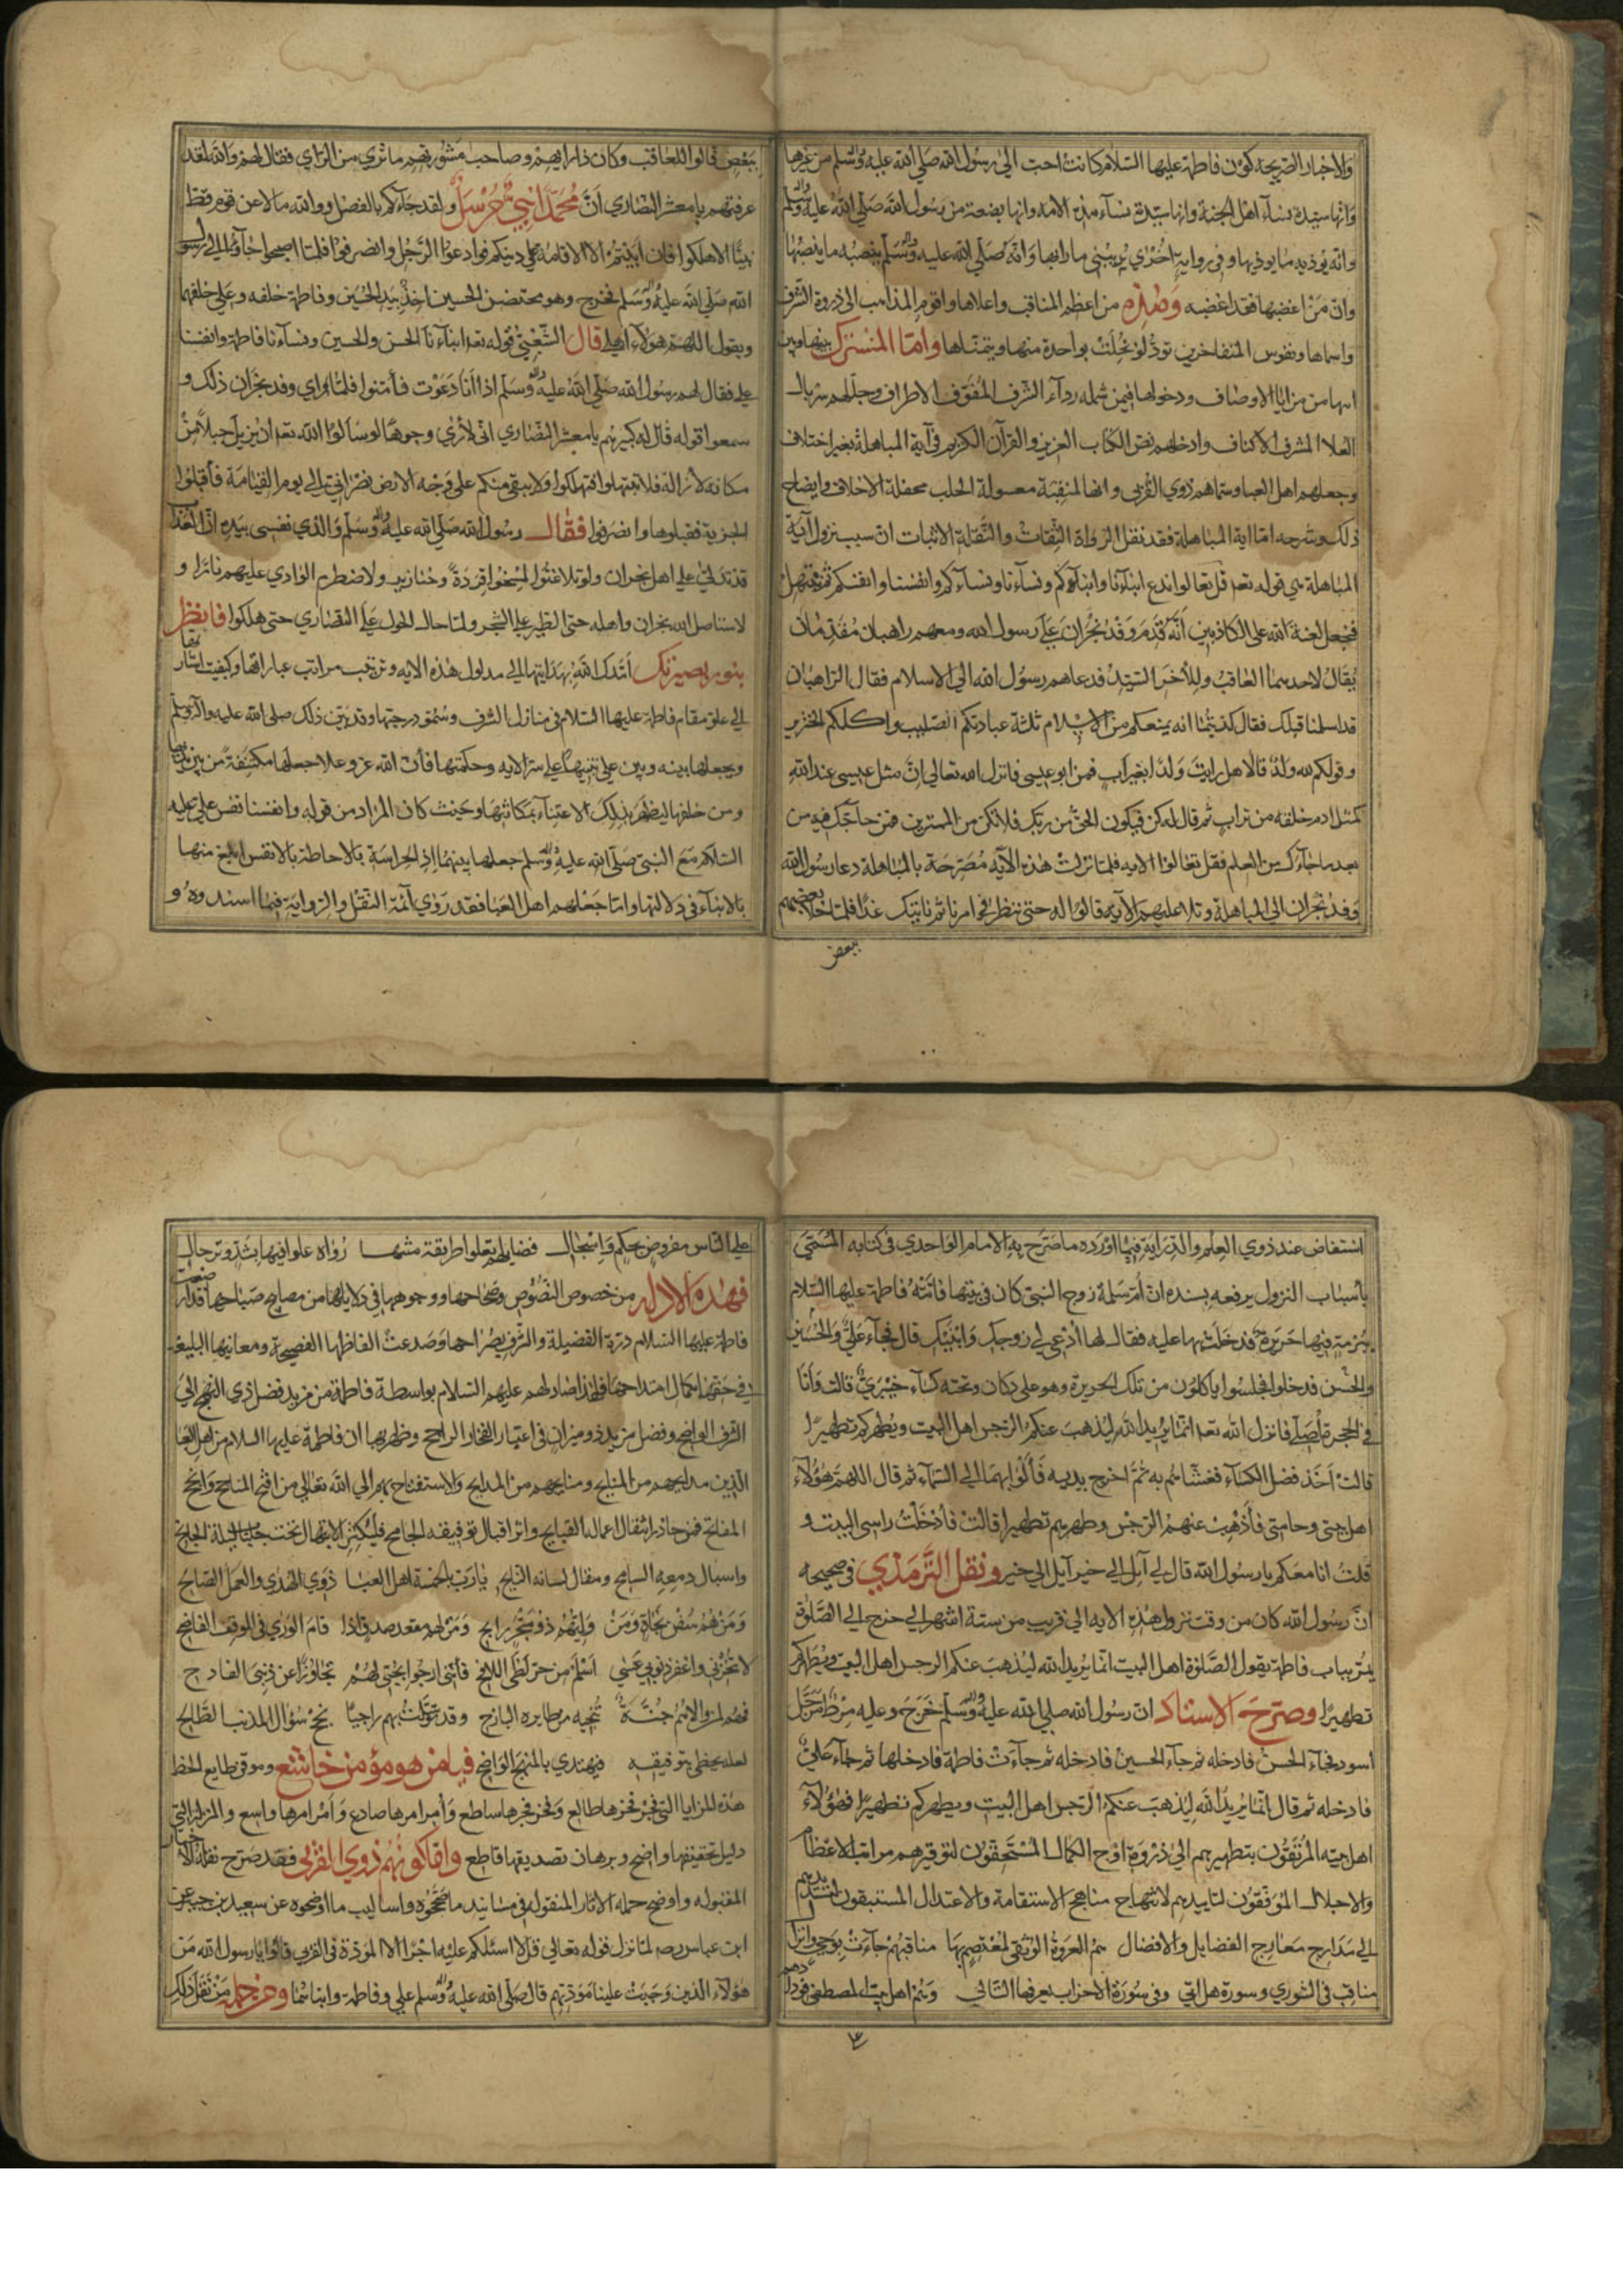 والاخبار الصريحة كون فاطمة عليها السلام كانت احب الى رسول الله صلى الله عليه وسلم من غيرها
وانها سيدة نساء اهل الجنة وانها سيدة نساء هذه الامة وانها بضعة من رسول الله صلى الله عليه واله وسلم
وانه يوذيه ما يوذيها وفي رواية اخرى يريبني ما رابها وانه صلى الله عليه واله وسلم ينصبه ما ينصبها
وان من اغضبها فقد اغضبه وهذه من اعظم المناقب واعلاها واقوم المذاهب الى ذروة الشرف
واسماها ونفوس المتفاخرين تود لو تحلت بواحدة منها ويتمناها واما المشترك بينها وبين
ابها من مزايا الاوصاف ودخولها فيمن شمله رداء الشرف المفوف الاطراف وجللهم سربال
العلا المشرف الاكناف وادخلهم نص الكتاب العزيز والقرآن الكريم في آية المباهلة بغير اختلاف
وجعلهم اهل العبا وسماهم ذوي القربى وانها لمنقبة معسولة الحلب محفلة الاخلاف وايضاح
ذلك وشرحه اما اية المباهلة فقد نقل الرواة الثقات والنقلة الاثبات ان سبب نزول آية
المباهلة هي قوله تعه قل تعالوا ندع ابناءنا وابناءكم ونساءنا ونساءكم وانفسنا وانفسكم ثم نبتهل
فنجعل لعنة الله على الكاذبين أنه قدم وفد نجران على رسول الله ومعهم راهبان مقدمان
يقال لاحدهما العاقب وللأخر السيد فدعاهم رسول الله الى الاسلام فقال الراهبان
قد اسلمنا قبلك فقال كذبتما انه يمنعكم من الاسلام ثلثة عبادتكم الصليب واكلكم الخنزير
وقولكم لله ولد قالا هل رايت ولدا بغير أب فمن ابو عيسى فانزل الله تعالى ان مثل عيسى عند الله
كمثل ادم خلقه من تراب ثم قال له كن فيكون الحق من ربك فلا تكن من الممترين فمن حاجك فيه من
بعد ما جاءك من العلم فقل تعالوا الايه فلما نزلت هذه الآيه مصرحة بالمباهلة دعا رسول الله
وفد نجران الى المباهلة وتلا عليهم الآية قالوا له حتى ننظر في امرنا ثم ناتيك غدا فلما خلا بعضهم
ببعض
ببعض قالوا للعاقب وكان ذا رايهم وصاحب مشورتهم ما ترى من الراي فقال لهم والله لقد
عرفتم يا معشر النصارى أن محمدا نبي مرسل ولقد جاءكم بالفضل ووالله ما لاعن قوم قط
نبيا الا هلكوا فان ابيتم الا الاقامة على دينكم فوادعوا الرجل وانصرفوا فلما اصبحوا جاؤا الى رسول
الله صلى الله عليه واله وسلم فخرج وهو محتضن الحسين اخذ بيد الحسن وفاطمة خلفه وعلي خلفهما
ويقول اللهم هولاء اهلي قال الشعبي قوله تعه ابناءنا الحسن والحسين ونساءنا فاطمة وانفسنا
علي فقال لهم رسول الله صلى الله عليه واله وسلم اذا أنا دعوت فأمنوا فلما راى وفد نجران ذلك و
سمعوا قوله قال له كبيرهم يا معشر النصارى اني لأرى وجوها لو سألوا الله تعه ان يزيل جبلا من
مكانه لأزاله فلا تبتهلوا فتهلكوا ولا يبقى منكم على وجه الارض نصراني الى يوم القيامة فأقبلوا
الجزية فقبلوها وانصرفوا فقال رسول الله صلى الله عليه واله وسلم والذي نفسي بيده ان العذاب
قد تدلى على اهل نجران ولو تلاعنوا لمسخوا قردة وخنازير ولاضطرم الوادي عليهم نارا و
لاستاصل الله نجران واهله حتى الطير على الشجر ولما حال الحول على النصارى حتى هلكوا فانظر
بنور بصيرتك أمدك الله بهدايتها الى مدلول هذه الايه وترتيب مراتب عباراتها وكيفيت اشارتها
الى علو مقام فاطمة عليها السلام في منازل الشرف وسمو درجتها وقد بين ذلك صلى الله عليه واله وسلم
وبجعلها بينه وبين علي تنبيها على سر الايه وحكمتها فان الله عز وعلا جعلها مكتنفة من بين يديها
ومن خلفها ليظهر بذلك الاعتناء بمكانتها وحيث كان المراد من قوله وانفسنا نفس علي عليه
السلام مع النبي صلى الله عليه واله وسلم جعلها بينهما اذ الحراسة بالاحاطة بالانفس ابلغ منها
بالابناء في دلالتها واما جعلهم اهل العبا فقد روى أئمة النقل والرواية فيما اسندوه و
استفاض عند ذوي العلم والدراية فيما اورده ما صرح به الامام الواحدي في كتابه المسمى
بأسباب النزول يرفعه بسنده ان ام سلمة زوج النبي كان في بيتها فاتته فاطمة عليها السلام
ببرمة فيها حريرة فدخلت بها عليه فقال لها ادعي لي زوجك وابنيك قال فجاء علي والحسين
والحسن فدخلوا فجلسوا ياكلون من تلك الحريرة وهو على دكان وتحته كساء خيبري قالت وأنا
في الحجرة اصلي فانزل الله تعه انما يريد الله ليذهب عنكم الرجس اهل البيت ويطهركم تطهيرا
قالت أخذ فضل الكساء فغشاهم به ثم اخرج يديه فألوى بهما الى السماء ثم قال اللهم هؤلاء
اهل بيتي وحامتي فأذهب عنهم الرجس وطهرهم تطهيرا قالت فأدخلت راسي البيت و
قلت انا معكم يا رسول الله قال لي آئل الى خير آئل الى خير ونقل الترمذي في صحيحه
ان رسول الله كان من وقت نزول هذه الايه الى قريب من ستة اشهر الى خرج الى الصلوة
يمر بباب فاطمة يقول الصلوة اهل البيت انما يريد الله ليذهب عنكم الرجس اهل البيت ويطهركم
تطهيرا وصرح الاستاذ ان رسول الله صلى الله عليه واله وسلم خرج وعليه مرط مرحل
اسود فجاء الحسن فادخله ثم جاء الحسين فادخله ثم جاءت فاطمة فادخلها ثم جاء علي
فادخله ثم قال انما يريد الله ليذهب عنكم الرجس اهل البيت ويطهركم تطهيرا فهؤلاء
اهل بيته المرتقون بتطهيرهم الى ذروة اوج الكمال المستحقون لتوقيرهم مراتب الاعظام
والاجلال الموفقون لتاييدهم لانتهاج مناهج الاستقامة والاعتدال المستبقون
الى مدارج معارج الفضايل والافضال هم العروة الوثقى لمعتصم بها مناقبهم جاءت بوحي وانزال
مناقب في الشورى وسورة هل اتى وفي سورة الاحزاب يعرفها التالي وهم اهل بيت المصطفى فودادهم
على الناس مفروض بحكم واسجال فضايلهم تعلوا طريقة متنها رواة علوا فيها بشد وترحال
فهذه الادلة من خصوص النصوص وصحاحها ووجوهها في دلايلها من مصابيح صباحها
فاطمة عليها السلام درة الفضيلة والشرف بصراحها وصدعت الفاظها الفصيحة ومعانيها البليغة
في حقها بكمال امتداحها فلهذا صار لهم عليهم السلام بواسطة فاطمة من مزيد فضل ذي النهج الى
الشرف الواضح وفضل مزيد ذو ميزان في اعتبار الفخار الراجح وظهر بها ان فاطمة عليها السلام من اهل العبا
الذين مدايحهم من المنايح ومنايحهم من المدايح والاستفتاح بهم الى الله تعالى من افتح المناجح وانجح
المفاتح فمن حاذر اثقال اعماله القبايح واثر اقبال توفيقه الجامح فليكثر الابتهال تحت
واسبال دمعه السافح ومقال لسانه النايح يا رب بالخمسة اهل العبا ذوي الهدى والعمل الصالح
ومن هم سفن نجاة ومن واليهم ذو متجر رابح ومن لهم مقعد صدق اذا قام الورى في الموقف الفاضح
لا تخزني واغفر ذنوبي عسى اسلم من حر لظى اللافح فأنني ارجوا بحبي لهم تجاوزا عن ذنبي الفادح
فهم لمن والاهم جنة تنجيه من طايره البارح وقد توسلت بهم راجيا نجح سؤال المذنب الطالح
لعله يحظى بتوفيقه فيهتدي بالمنهج الواضح فيا من هو مؤمن خاشع وموقن طايع الحظ
هذه المزايا التي فجر فخرها طالع وفخر فجرها ساطع وأمر امرها صادع وأمر امرها واسع والمزايا التي
دليل تحقيقها واضح وبرهان تصديقها قاطع واما كونهم ذوي القربى فقد صرح نقلة الاخبار
المقبوله واوضح حملة الاثار المنقوله في مسانيد ما صححوه واساليب ما اوضحوه عن سعيد بن جبير عن
ابن عباس رضه لما نزل قوله تعالى قل لا اسئلكم عليه اجرا الا المودة في القربى قالوا يا رسول الله من
هؤلاء الذين وجبت علينا مودتهم قال صلى الله عليه واله وسلم علي وفاطمة وابناهما وممن نقل ذلك